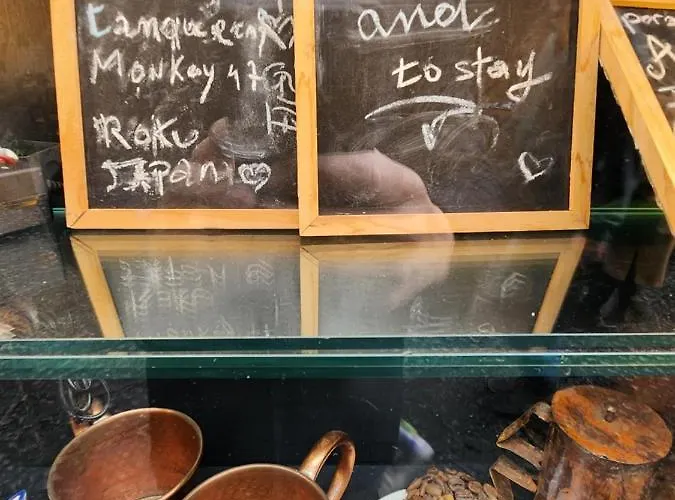 Tanqueray
Monkey 47
Roku
Japan
and
to stay